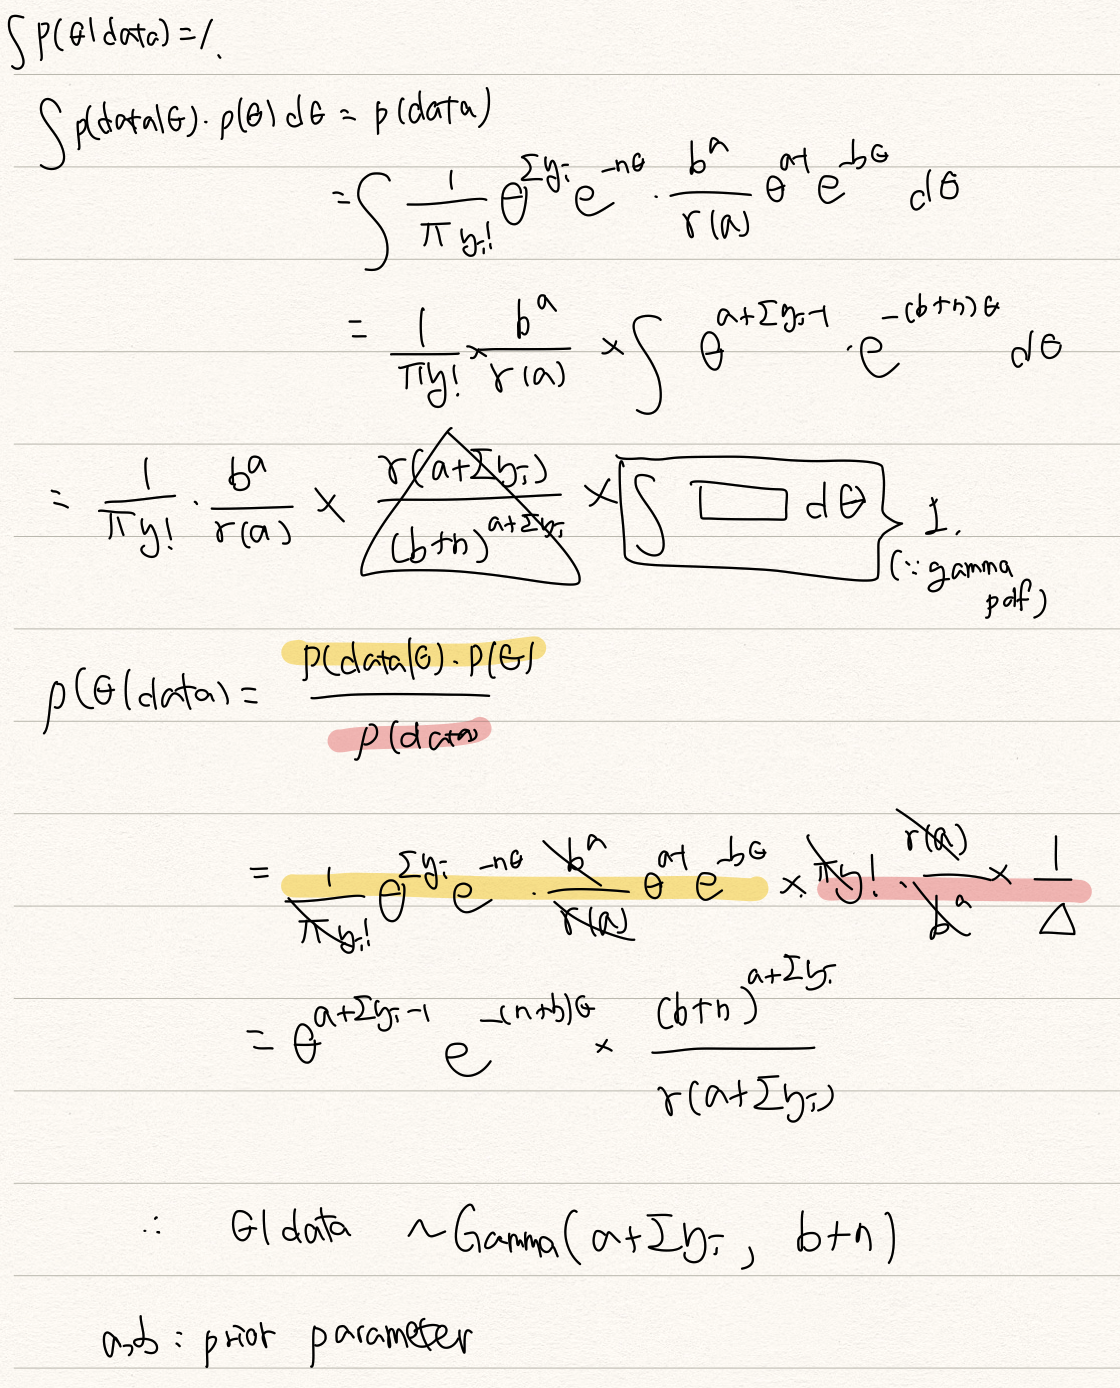 ∫ p(θ|data) = 1.
∫ p(data|θ) · p(θ) dθ = p(data)
= ∫ 1/(π yᵢ!) θ^(Σyᵢ) e^(-nθ) · b^a/r(a) θ^(a-1) e^(-bθ) dθ
= 1/(πy!) × b^a/r(a) × ∫ θ^(a+Σyᵢ-1) · e^(-(b+n)θ) dθ
= 1/(πy!) · b^a/r(a) × r(a+Σyᵢ)/(b+n)^(a+Σyᵢ) × ∫ □ dθ } 1.
(∵ gamma
pdf)
p(θ|data) = p(data|θ) · p(θ)/p(data)
= 1/(π yᵢ!) θ^(Σyᵢ) e^(-nθ) · b^a/r(a) θ^(a-1) e^(-bθ) × πy! · r(a)/b^a × 1/△
= θ^(a+Σyᵢ-1) e^(-(n+b)θ) × (b+n)^(a+Σyᵢ)/r(a+Σyᵢ)
∴ θ|data ~ Gamma(a+Σyᵢ, b+n)
a,b : prior parameter